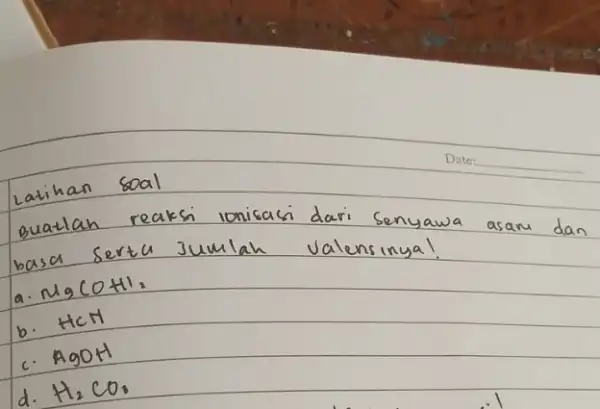 Date:
Latihan soal
Buatlah reaksi ionisasi dari senyawa asam dan
basa serta Jumlah valensinya!
a. Mg(OH)₂
b. HCN
c. AgOH
d. H₂CO₃